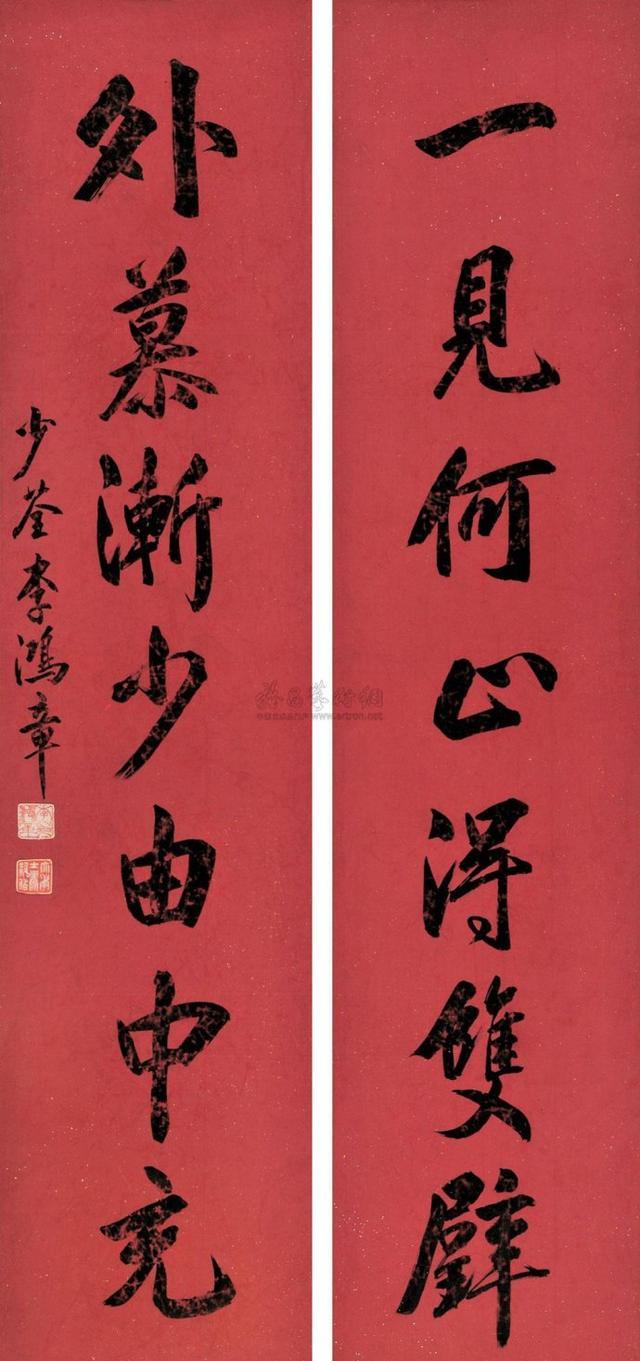 一見何止得雙璧
外慕漸少由中充
少荃李鴻章
www.artron.net